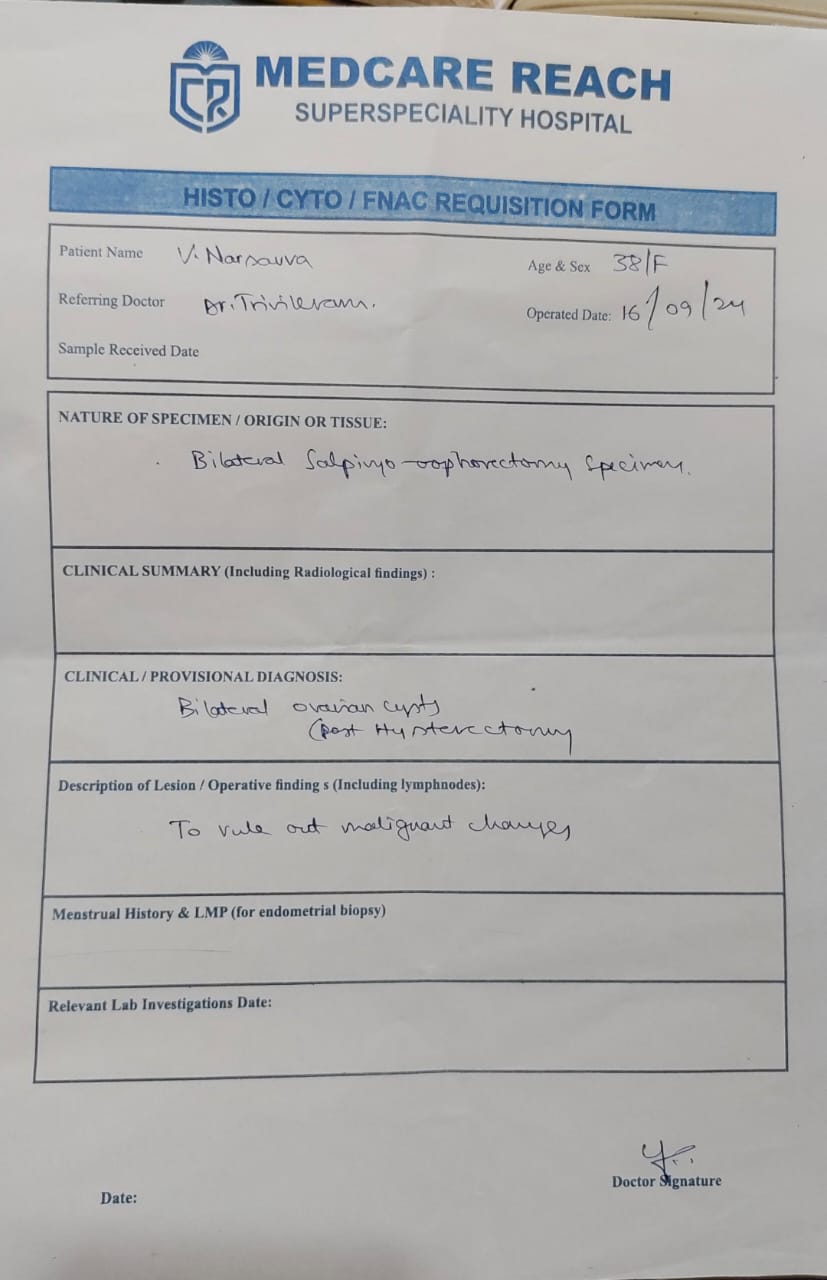 MEDCARE REACH
SUPERSPECIALITY HOSPITAL
HISTO / CYTO / FNAC REQUISITION FORM
Patient Name V. Narsavva Age & Sex 38/F
Referring Doctor Dr. Trivikram. Operated Date: 16/09/24
Sample Received Date
NATURE OF SPECIMEN / ORIGIN OR TISSUE:
Bilateral Salpingo-oophorectomy Specimen.
CLINICAL SUMMARY (Including Radiological findings) :
CLINICAL / PROVISIONAL DIAGNOSIS:
Bilateral ovarian cysts
(post Hysterectomy
Description of Lesion / Operative finding s (Including lymphnodes):
To rule out malignant changes
Menstrual History & LMP (for endometrial biopsy)
Relevant Lab Investigations Date:
Doctor Signature
Date: